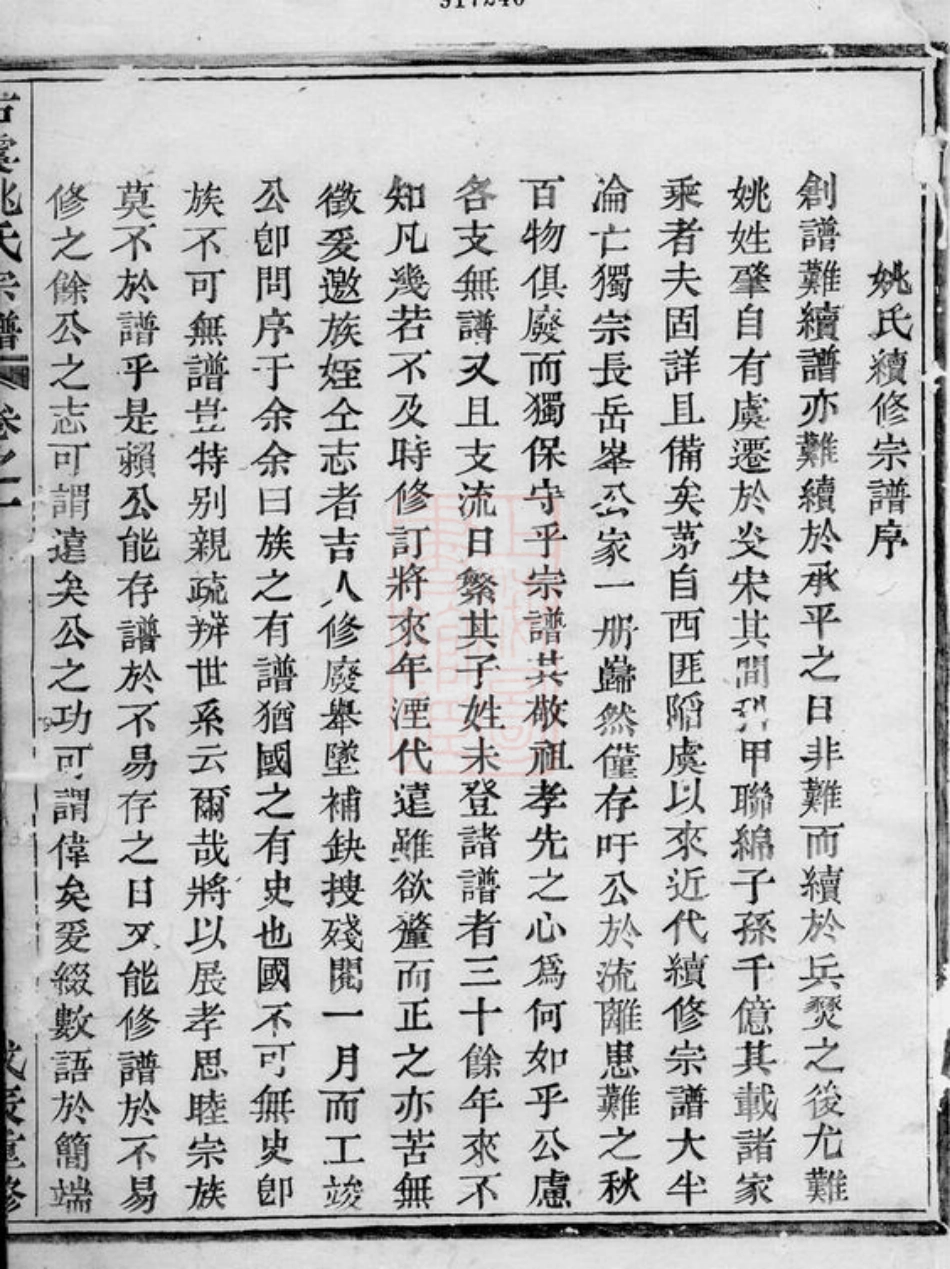 917240
姚氏續修宗譜序
創譜難續譜亦難續於承平之日非難而續於兵燹之後尤難
姚姓肇自有虞遷於炎宋其間科甲聯綿子孫千億其載諸家
乘者夫固詳且備矣茅自西匪陷虞以來近代續修宗譜大半
淪亡獨宗長岳峯公家一册巋然僅存吁公於流離患難之秋
百物俱廢而獨保守乎宗譜其敬祖孝先之心爲何如乎公慮
各支無譜又且支流日繁其子姓未登諸譜者三十餘年來不
知凡幾若不及時修訂將來年湮代遠雖欲釐而正之亦苦無
徵爰邀族姪仝志者吉人修廢舉墜補缺搜殘閱一月而工竣
公卽問序于余余曰族之有譜猶國之有史也國不可無史卽
族不可無譜豈特别親疏辨世系云爾哉將以展孝思睦宗族
莫不於譜乎是賴公能存譜於不易存之日又能修譜於不易
修之餘公之志可謂遠矣公之功可謂偉矣爰綴數語於簡端
古虞姚氏宗譜 卷之一